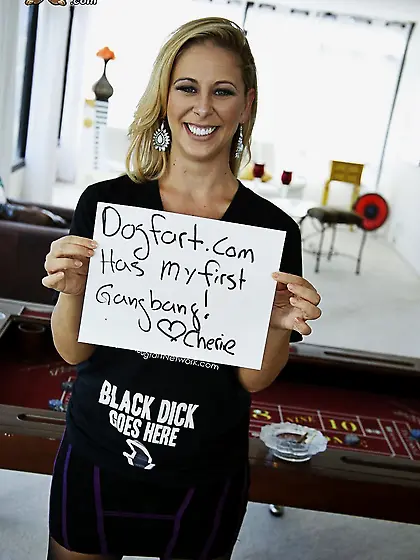 .com
Dogfart.com
Has my first
Gangbang!
♡Cherie
BLACK DICK
GOES HERE